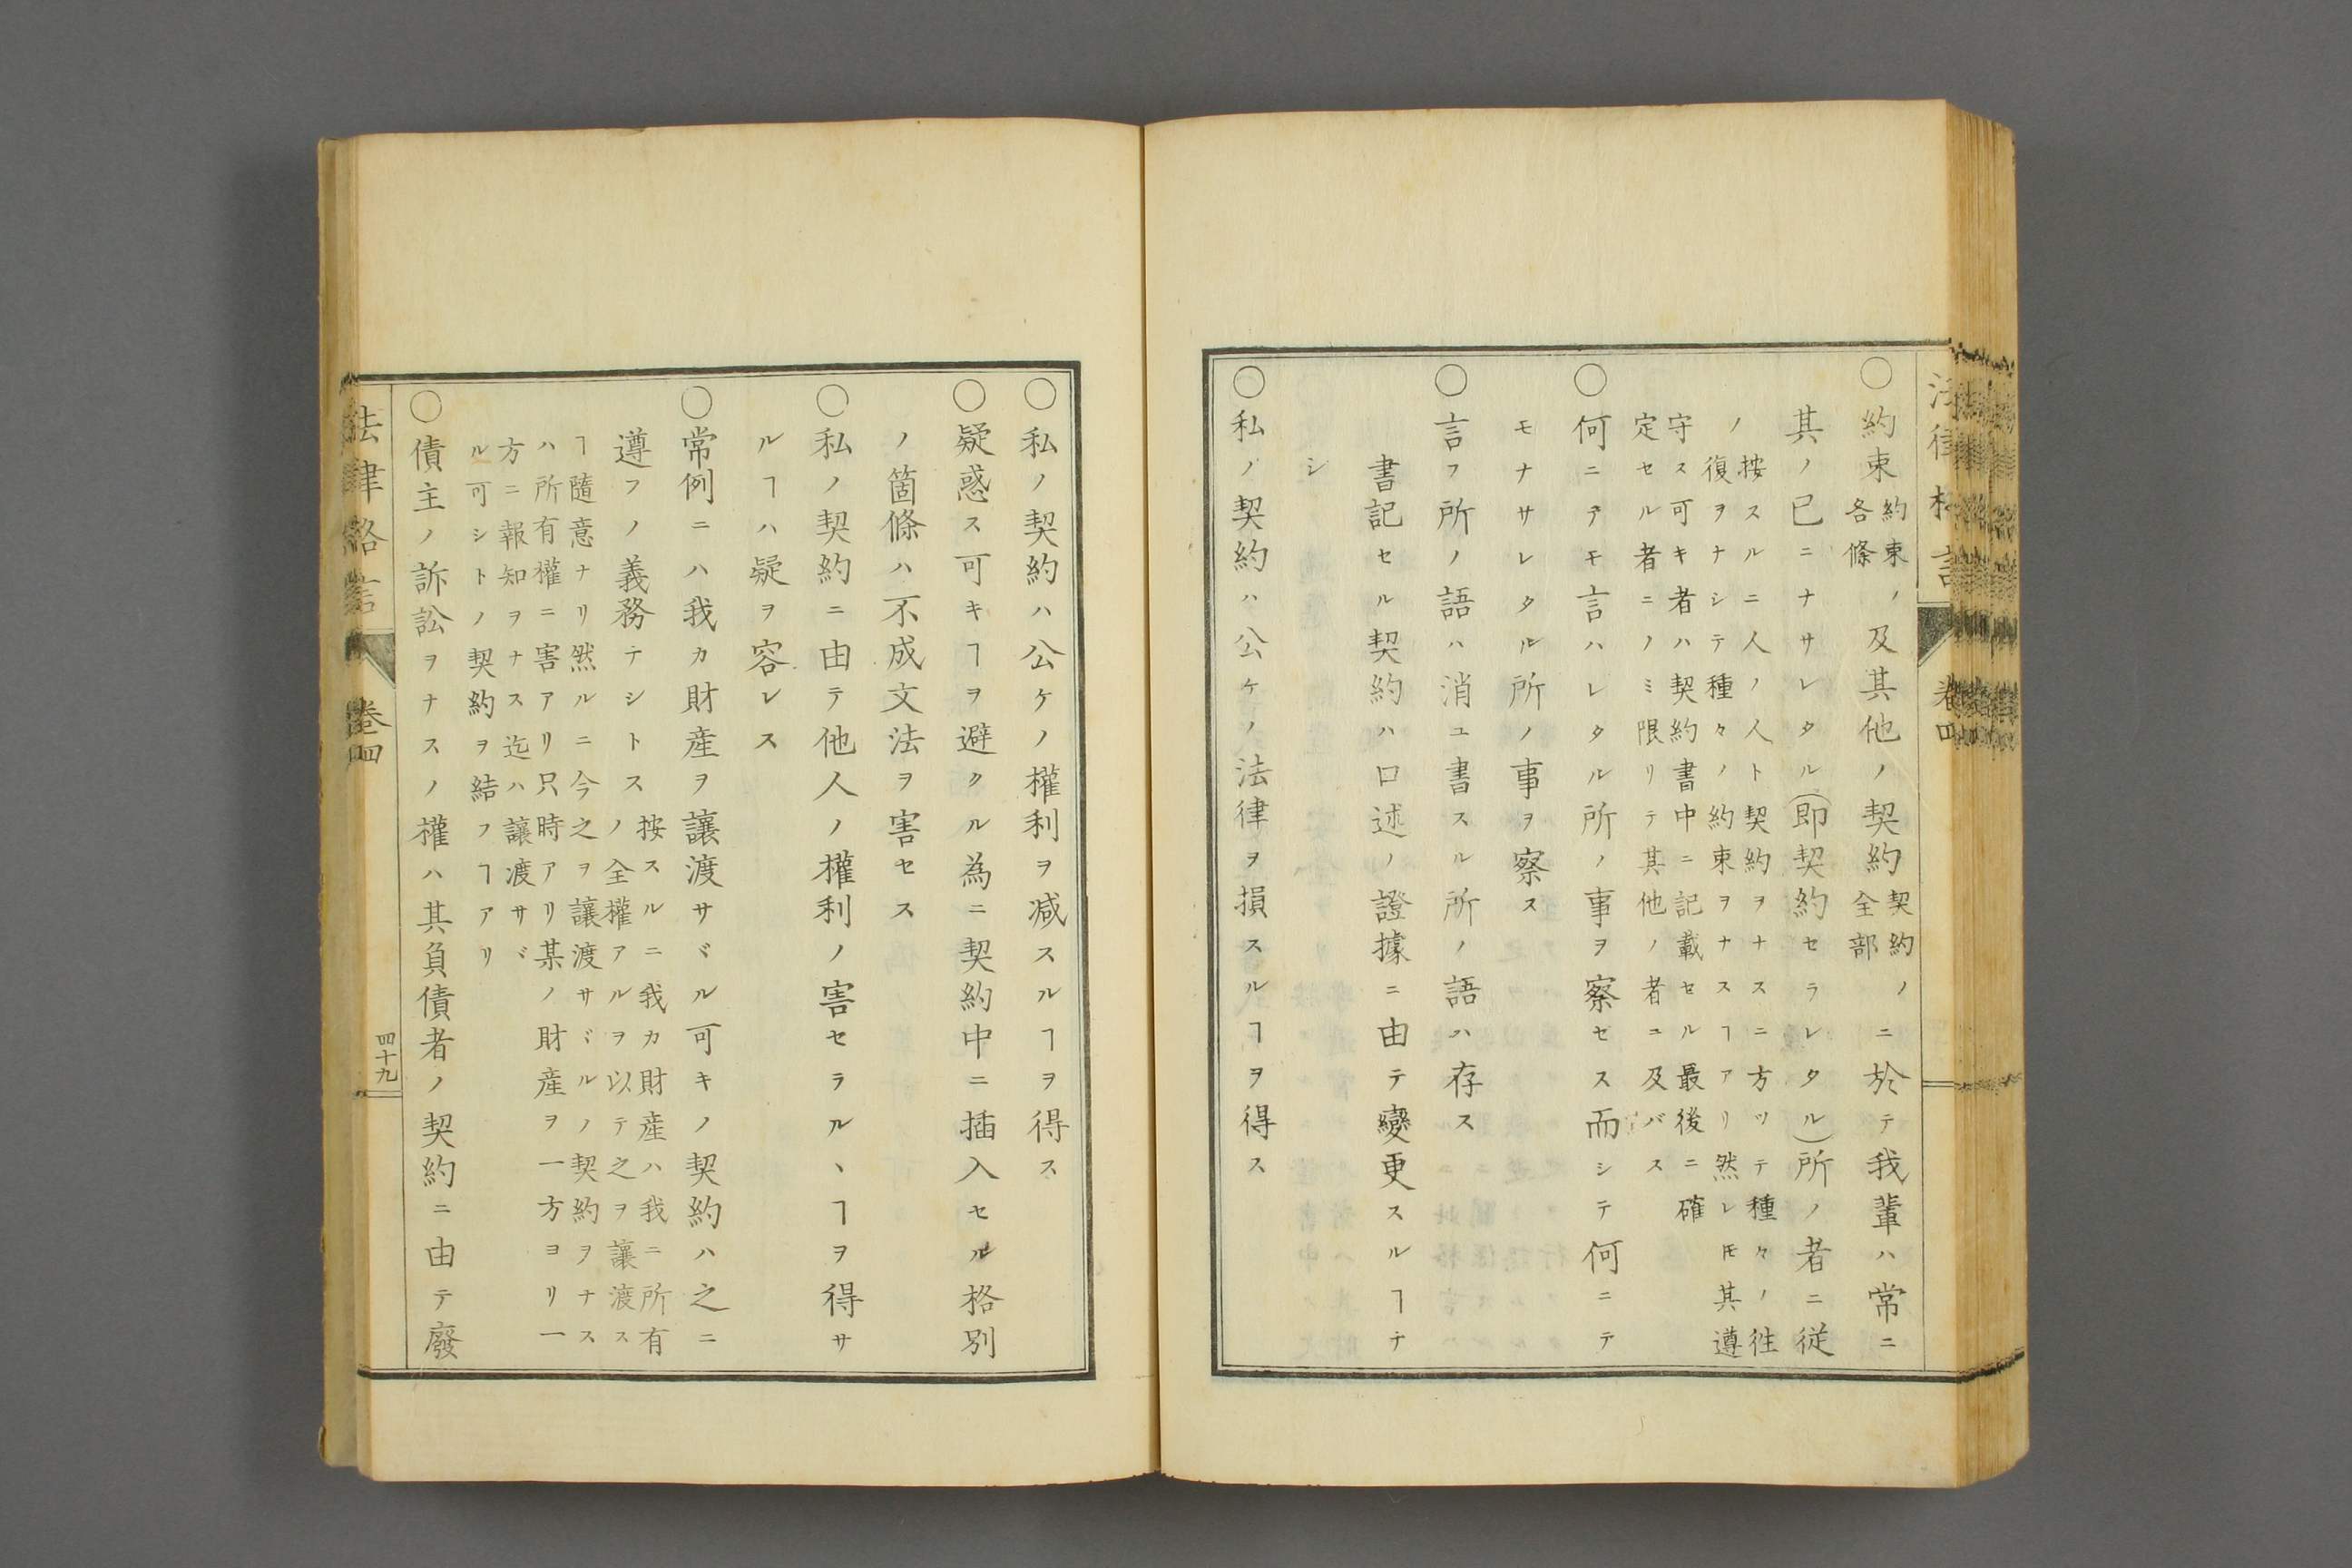 法律格言
卷四
○約束約束各條ノ及其他ノ契約契約全部ノニ於テ我輩ハ常ニ
其ノ已ニナサレタル(即契約セラレタル)所ノ者ニ従
ノ
按スルニ人ノ人ト契約ヲナスニ方ツテ種々ノ往
復ヲナシテ種々ノ約束ヲナスヿアリ然レ𪜈其遵
守ス可キ者ハ契約書中ニ記載セル最後ニ確
定セル者ニノミ限リテ其他ノ者ニ及バス
○何ニテモ言ハレタル所ノ事ヲ察セス而シテ何ニテ
モナサレタル所ノ事ヲ察ス
○言フ所ノ語ハ消ユ書スル所ノ語ハ存ス
書記セル契約ハ口述ノ證據ニ由テ變更スルヿナ
シ
○私ノ契約ハ公ケノ法律ヲ損スルヿヲ得ス
○私ノ契約ハ公ケノ權利ヲ減スルヿヲ得ス
○疑惑ス可キヿヲ避クル為ニ契約中ニ插入セル格別
ノ箇條ハ不成文法ヲ害セス
○私ノ契約ニ由テ他人ノ權利ノ害セラルヽヿヲ得サ
ルヿハ疑ヲ容レス
○常例ニハ我カ財産ヲ讓渡サヾル可キノ契約ハ之ニ
遵フノ義務テシトス
按スルニ我カ財産ハ我ニ所有
ノ全權アルヲ以テ之ヲ讓渡ス
ヿ隨意ナリ然ルニ今之ヲ讓渡サヾルノ契約ヲナス
ハ所有權ニ害アリ只時アリ某ノ財産ヲ一方ヨリ一
方ニ報知ヲナス迄ハ讓渡サヾ
ル可シトノ契約ヲ結フヿアリ
○債主ノ訴訟ヲナスノ權ハ其負債者ノ契約ニ由テ廢
法律格言
卷四
四十九